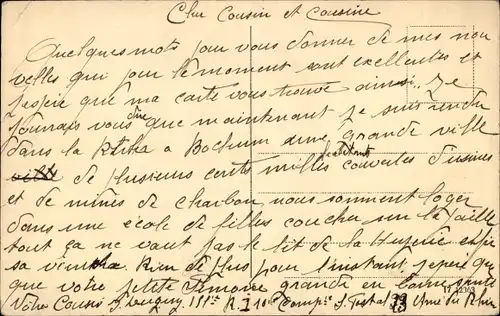 Cher Cousin et Cousine
Quelques mots pour vous donner de mes nou
velles qui pour le moment sont excellentes et
j'espère que ma carte vous trouve ainsi. Je
pourrais vous dire que maintenant je suis rendu
dans la Rhur a Bochum une grande ville
de plusieurs cents milles habitants couvertes d'usines
et de mines de charbon, nous somment loger
dans une école de filles coucher sur la paille
tout ça ne vaut pas le lit de la
sa viendra Rien de plus pour l'instant, j'espère que
que votre petite Simone grande en bonne santé
Votre Cousin 151e R.I 10e Compie S. Postal 33 Armée du Rhin